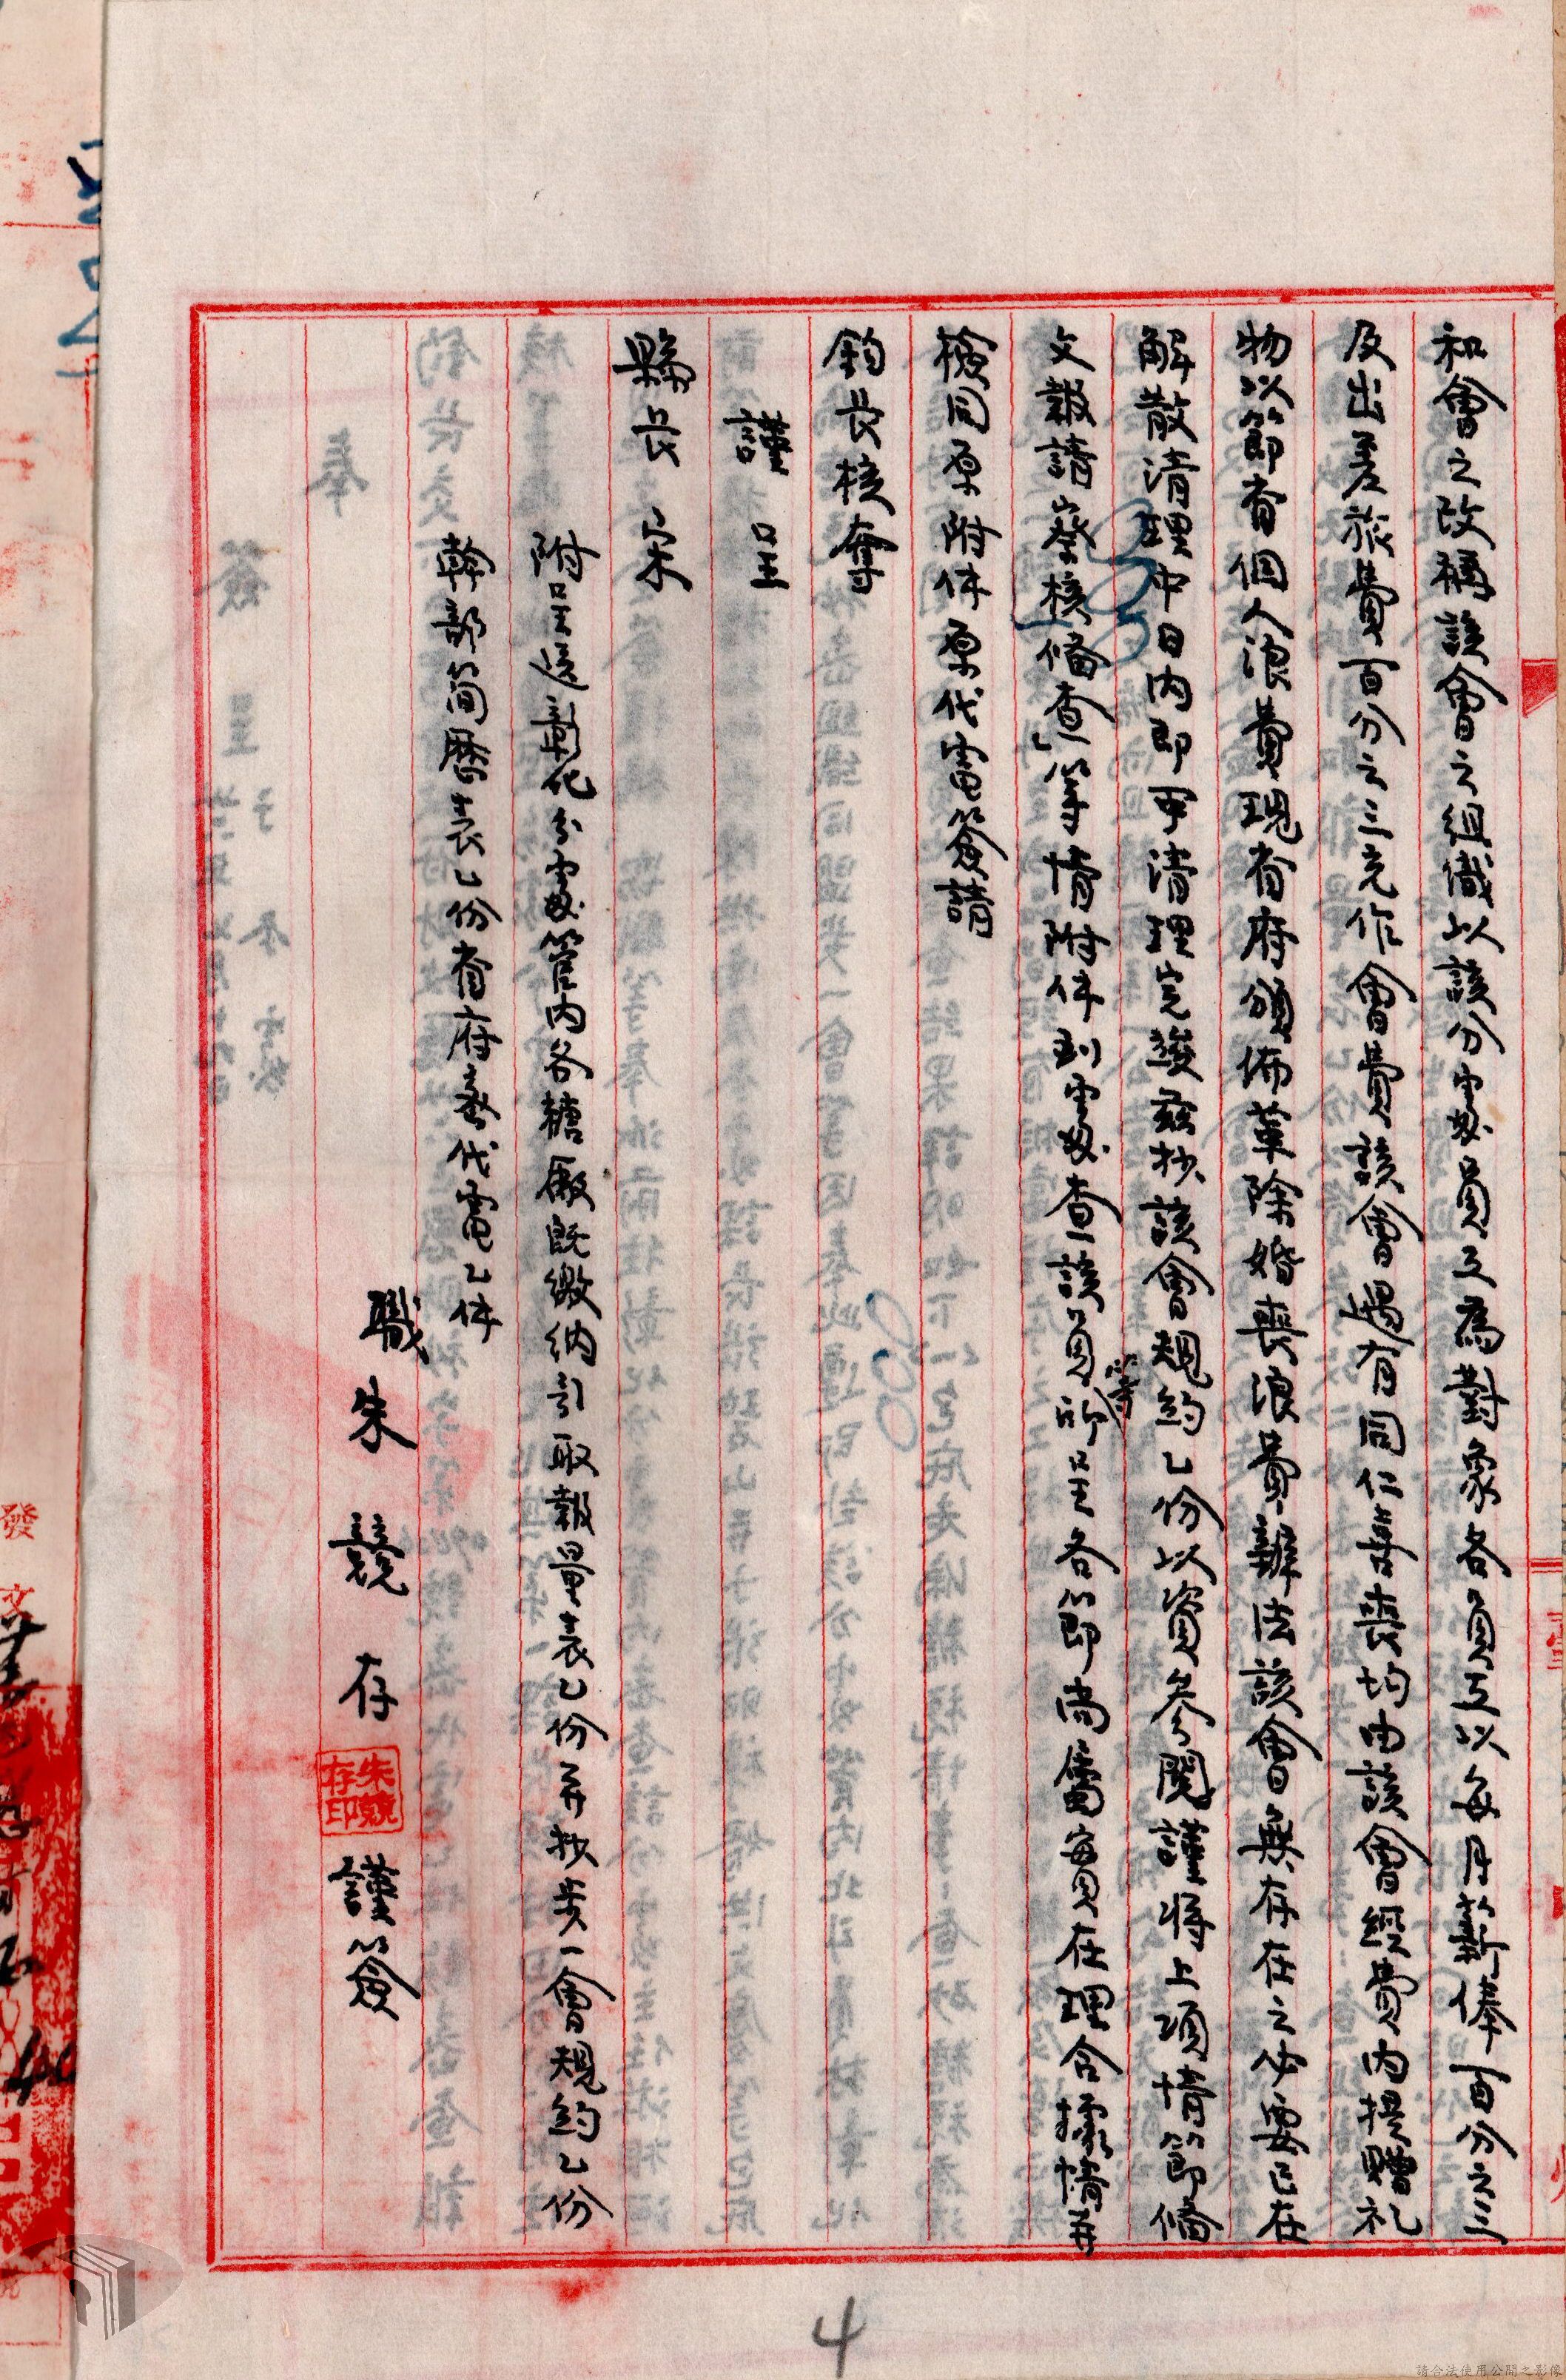 和會之改稱該會之組織以該分處員工為對象各員工以每月薪俸百分之三
及出差旅費百分之三充作會費該會遇有同仁喜喪均由該會經費內提贈礼
物以節省個人浪費現省府頒佈革除婚喪浪費辦法該會無存在之必要已在
解散清理中日內即可清理完竣茲抄該會規約乙份以資參閱謹將上項情節備
文報請察核備查」等情附件到處查該員等所呈各節尚屬實在理合據情弄
檢同原附件原代電簽請
鈞長核奪
謹呈
縣長宋
附呈 彰化分處管內各糖廠既繳納引取報量表乙份弄抄 一會規約乙份
幹部簡歷表乙份省府 代電乙件
職朱競存謹簽
朱競存印
4
發文
請合法使用公開之影像